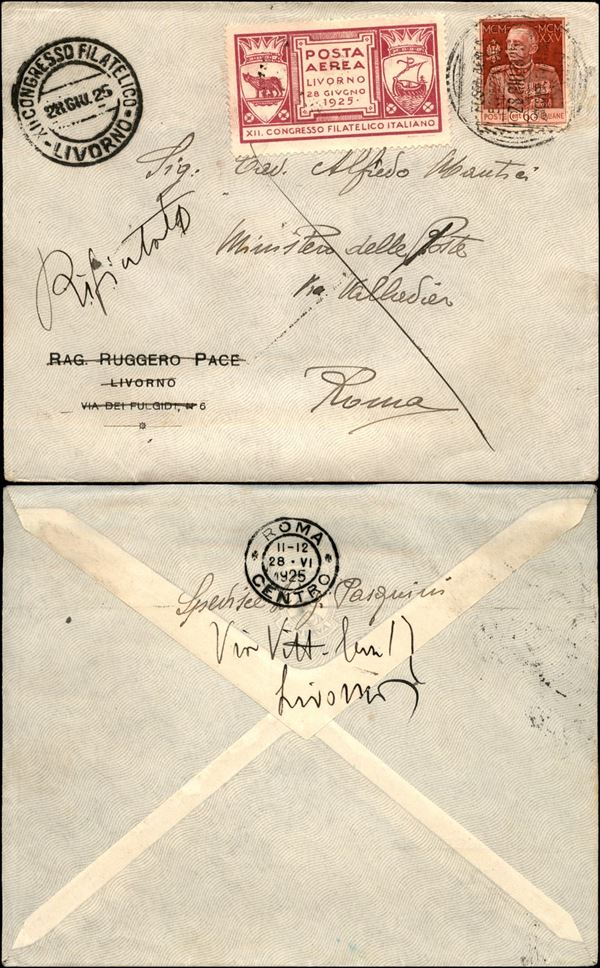 XII CONGRESSO FILATELICO
28 GIU. 25
- LIVORNO -
POSTA
AEREA
LIVORNO
28 GIVGNO
1925
XII. CONGRESSO FILATELICO ITALIANO
MCM MCM
XXV
POSTE CENT 60 ITALIANE
Sig. Cav. Alfredo
Rifiutato
Ministero delle Poste
Via Valladier
Roma
RAG. RUGGERO PACE
LIVORNO
VIA DEI FULGIDI, N 6
* ROMA *
11-12
28 · VI
1925
CENTRO
Pasquini
Via Vitt. Em.
Livorno